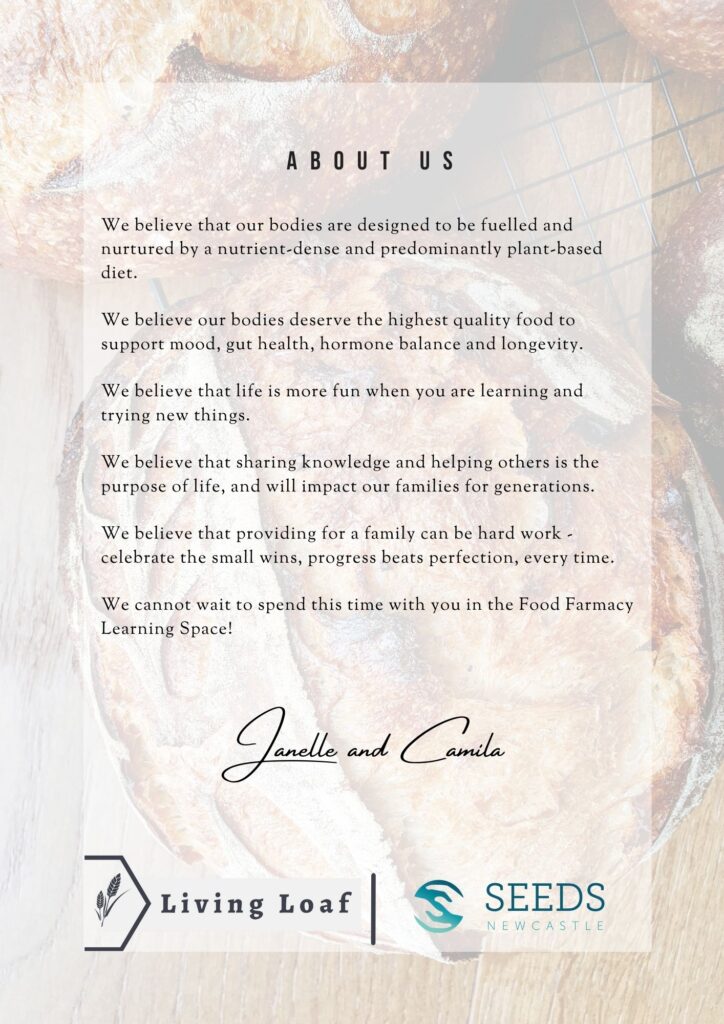 ABOUT US
We believe that our bodies are designed to be fuelled and
nurtured by a nutrient-dense and predominantly plant-based
diet.
We believe our bodies deserve the highest quality food to
support mood, gut health, hormone balance and longevity.
We believe that life is more fun when you are learning and
trying new things.
We believe that sharing knowledge and helping others is the
purpose of life, and will impact our families for generations.
We believe that providing for a family can be hard work -
celebrate the small wins, progress beats perfection, every time.
We cannot wait to spend this time with you in the Food Farmacy
Learning Space!
Janelle and Camila
Living Loaf
SEEDS
NEWCASTLE